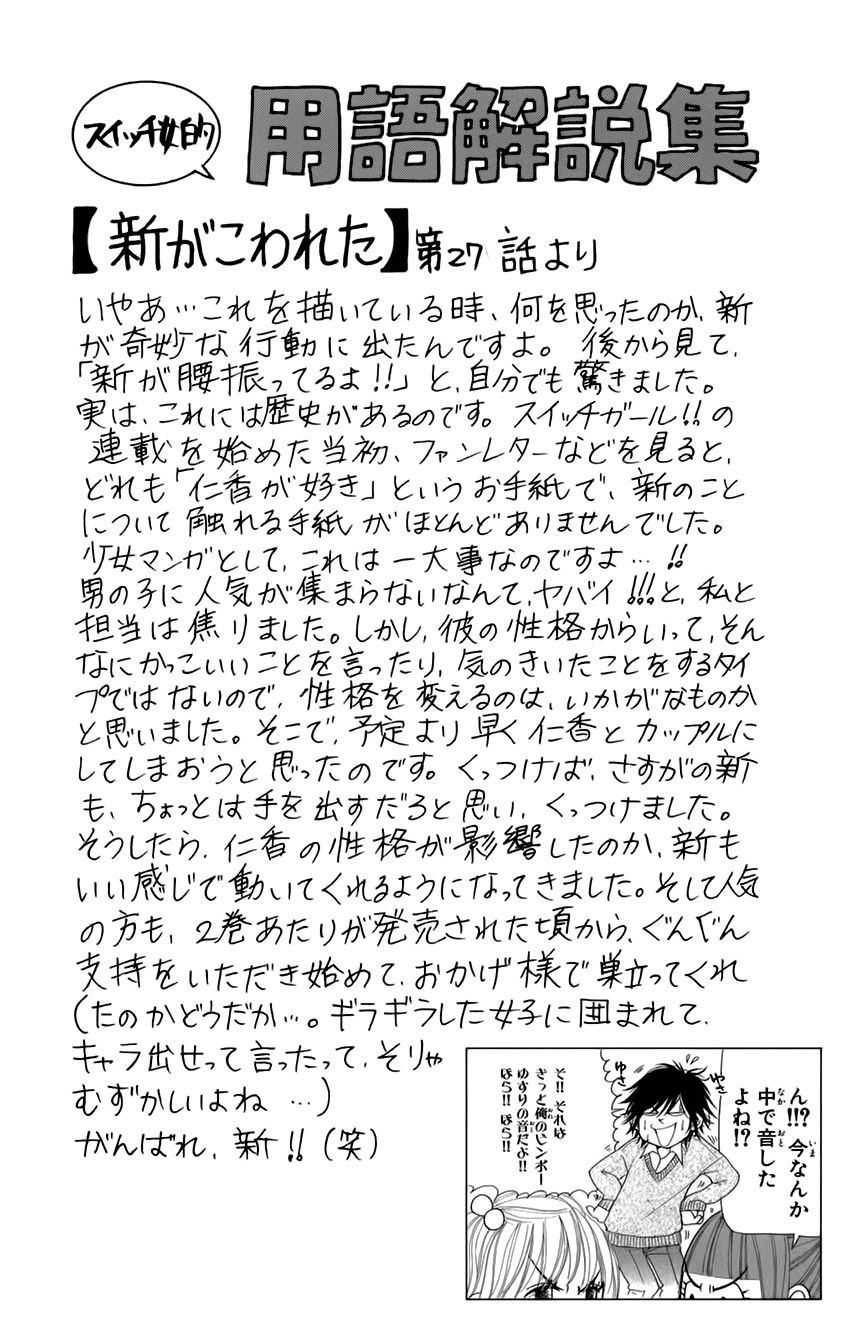 スイッチ女的
用語解説集
【新がこわれた】第27話より
いやあ…これを描いている時、何を思ったのか、新
が奇妙な行動に出たんですよ。後から見て、
「新が腰振ってるよ!!」と、自分でも驚きました。
実は、これには歴史があるのです。スイッチガール!!の
連載を始めた当初、ファンレターなどを見ると、
どれも「仁香が好き」というお手紙で、新のこと
について触れる手紙がほとんどありませんでした。
少女マンガとして、これは一大事なのですよ…!!
男の子に人気が集まらないなんて、ヤバイ!!!と、私と
担当は焦りました。しかし、彼の性格からいって、そん
なにかっこいいことを言ったり、気のきいたことをするタイ
プではないので、性格を変えるのは、いかがなものか
と思いました。そこで、予定より早く仁香とカップルに
してしまおうと思ったのです。くっつけば、さすがの新
も、ちょっとは手を出すだろと思い、くっつけました。
そうしたら、仁香の性格が影響したのか、新も
いい感じで動いてくれるようになってきました。そして人気
の方も、2巻あたりが発売された頃から、ぐんぐん
支持をいただき始めて、おかげ様で巣立ってくれ
(たのかどうだか…。ギラギラした女子に囲まれて、
キャラ出せって言ったって、そりゃ
むずかしいよね…)
がんばれ、新!!(笑)
ん!!?今なんか
中で音した
よね!?
ゆさ
ゆさ
そ!!それは
きっと俺のビンボー
ゆすりの音だよ!!
ほら!!ほら!!